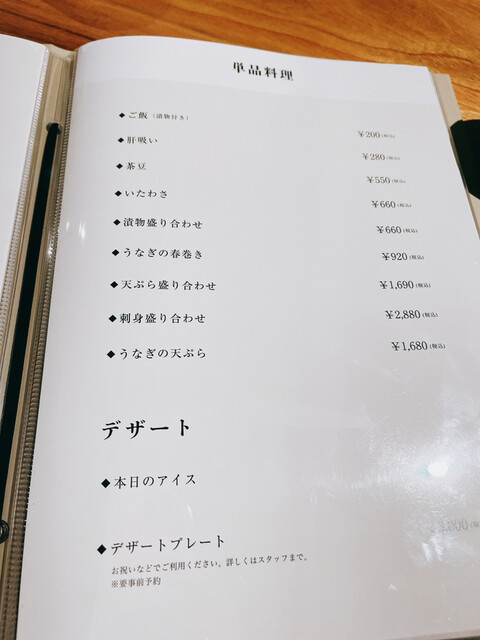 単品料理
◆ご飯（漬物付き） ￥200(税込)
◆肝吸い ￥280(税込)
◆茶豆 ￥550(税込)
◆いたわさ ￥660(税込)
◆漬物盛り合わせ ￥660(税込)
◆うなぎの春巻き ￥920(税込)
◆天ぷら盛り合わせ ￥1,690(税込)
◆刺身盛り合わせ ￥2,880(税込)
◆うなぎの天ぷら ￥1,680(税込)
デザート
◆本日のアイス
◆デザートプレート
お祝いなどでご利用ください。詳しくはスタッフまで。
※要事前予約